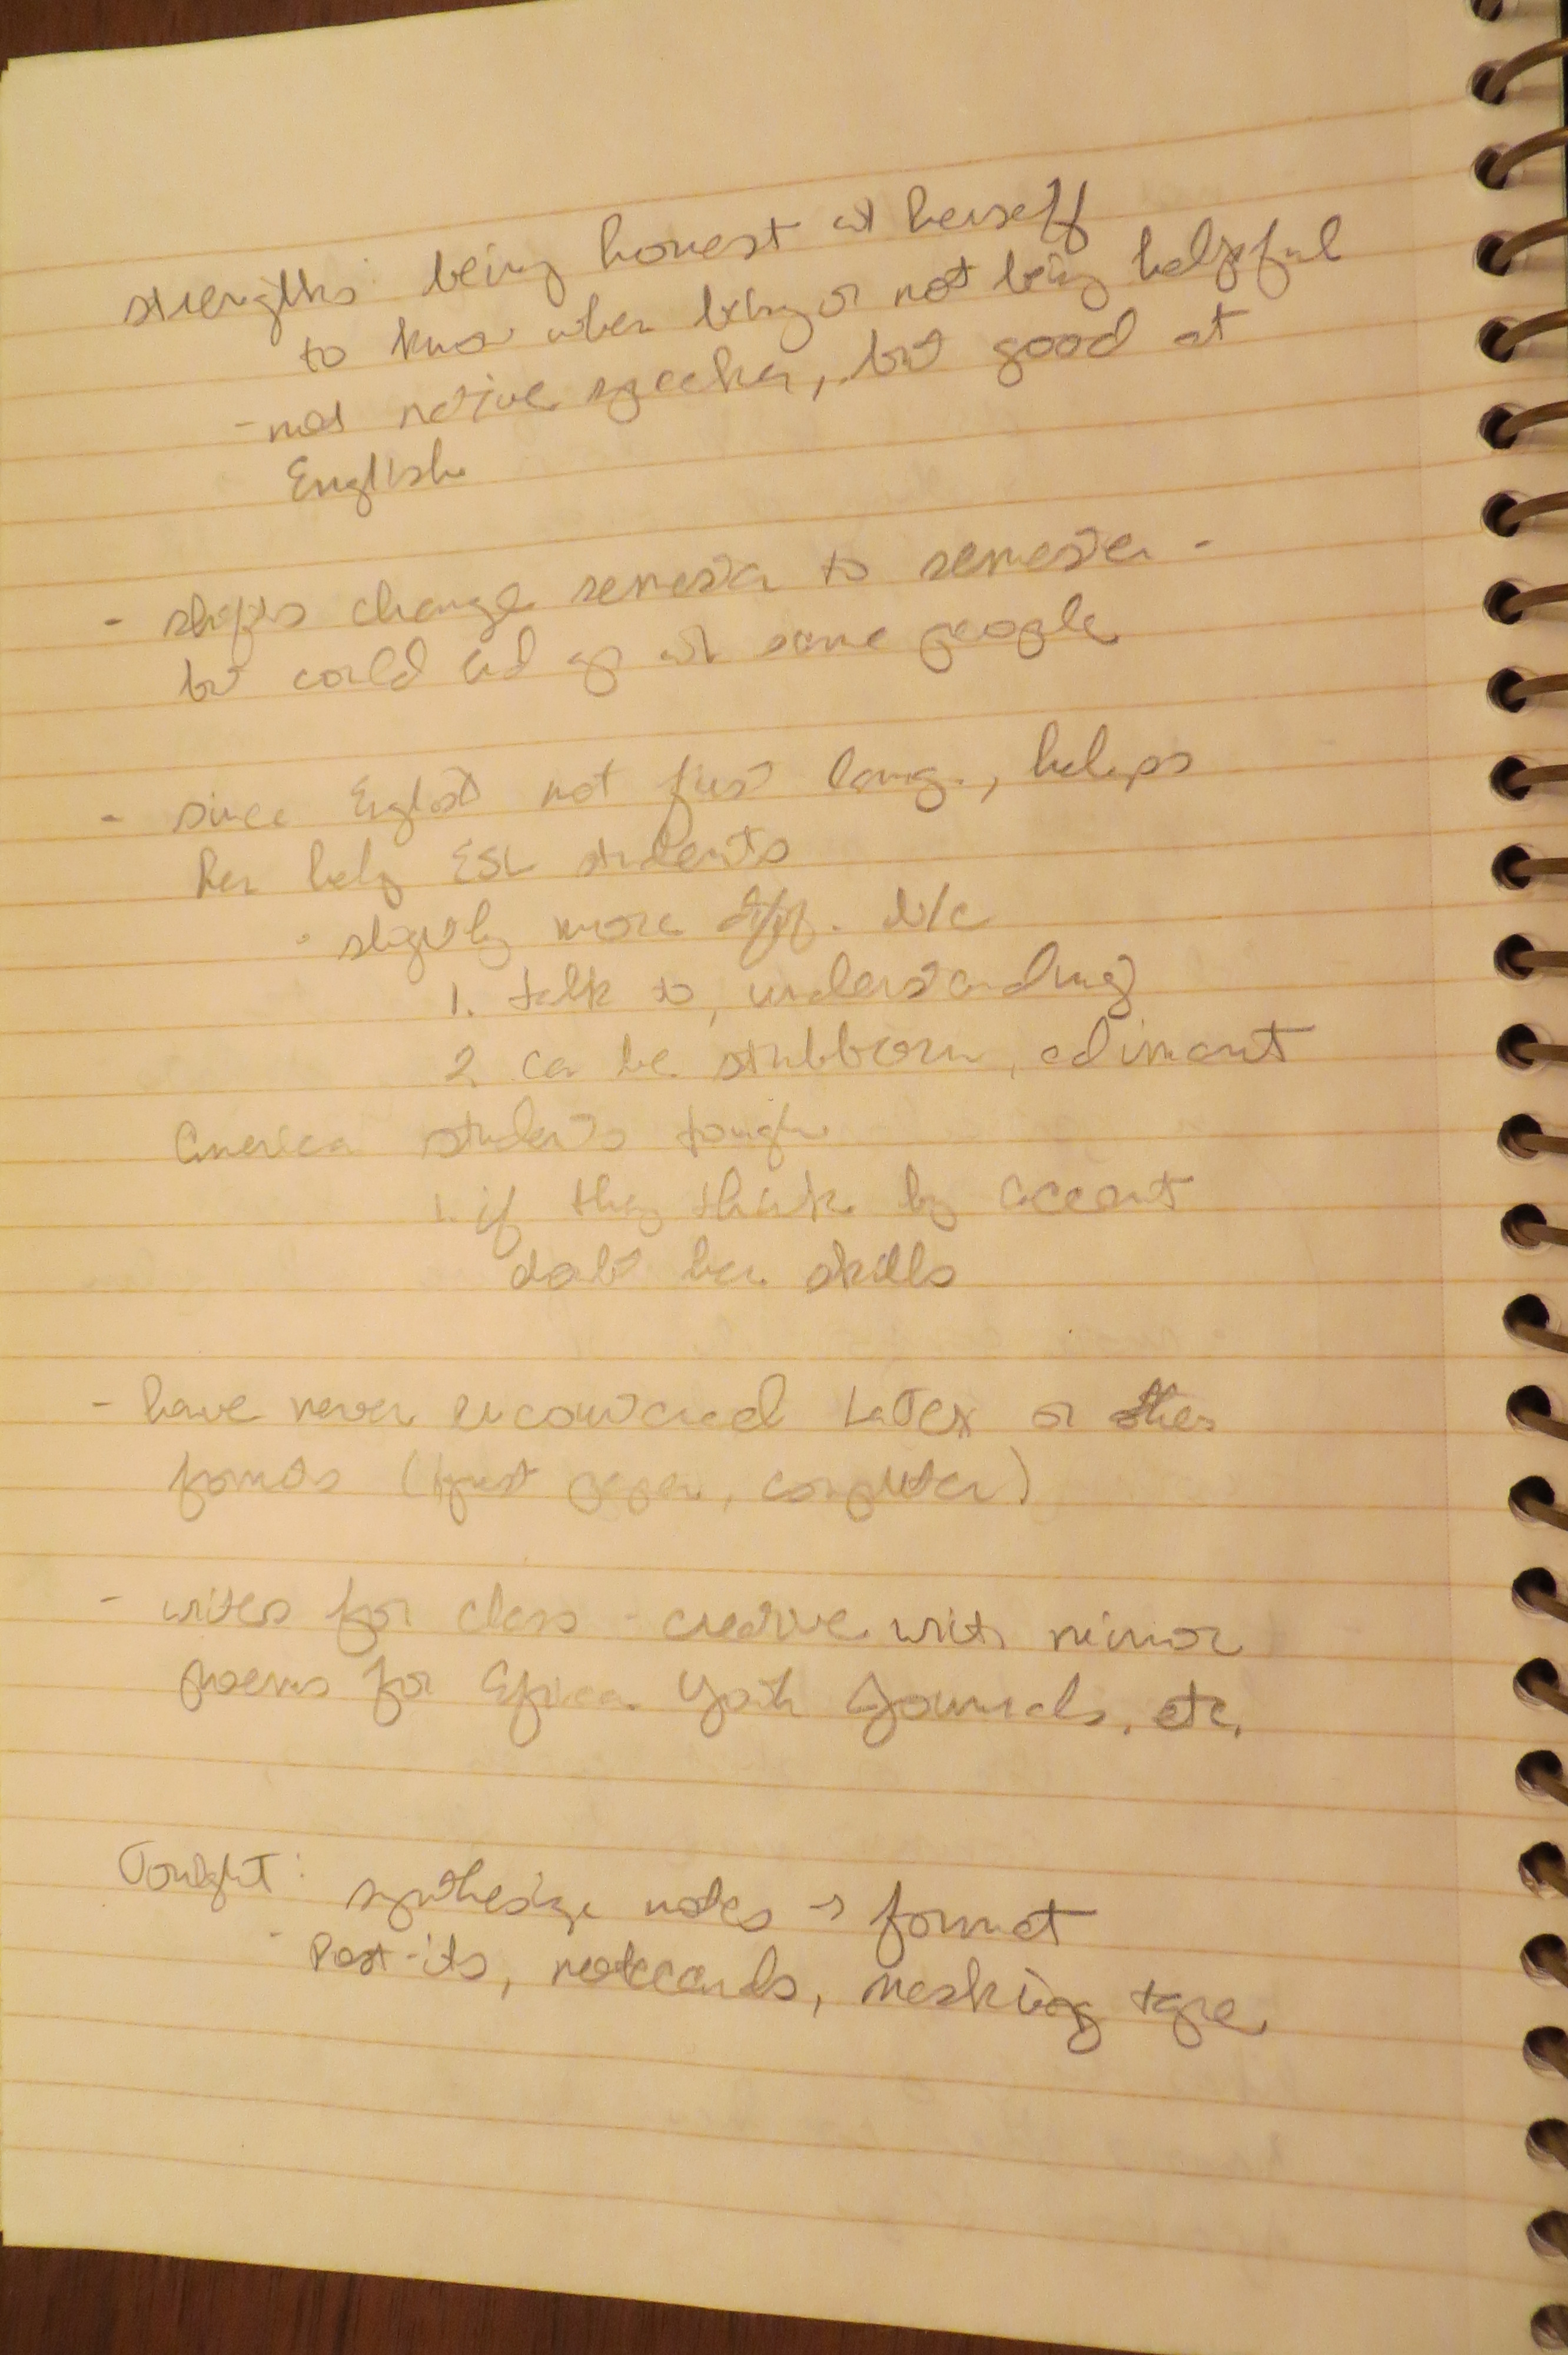 strengths: being honest w/ herself
to know when being or not being helpful
- not native speaker, but good at
English
- shifts change semester to semester -
but could end up w/ same people
- since English not first lang., helps
her help ESL students
- slightly more diff. b/c
1. talk to, understanding
2. can be stubborn, adimant
America students tough
1. if they think by accent
doubt her skills
- have never encountered LaTex or other
formats (just paper, computer)
- writes for class - creative writ. minor
poems for Africa Youth Journals, etc.
Tonight: synthesize notes → format
- Post-its, notecards, masking tape